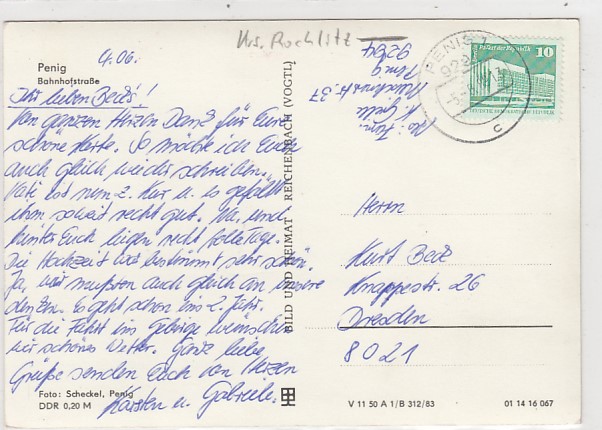 Krs. Rochlitz
Penig
Bahnhofstraße
9.06.
Ihr lieben Becks!
Von ganzen Herzen Dank für Eure
schöne Karte. So möchte ich Euch
auch gleich wieder schreiben.
Vati ist nun z. Kur u. es gefällt
ihm soweit recht gut. Na, und
hinter Euch liegen recht tolle Tage.
Die Hochzeit war bestimmt sehr schön.
Ja, wir mußten auch gleich an unsere
denken. Es geht schon ins 2. Jahr.
Für die Fahrt ins Gebirge wünschen
wir schönes Wetter. Ganz liebe
Grüße senden Euch von Herzen
Karsten u. Gabriele.
Foto: Scheckel, Penig
DDR 0,20 M
BILD UND HEIMAT REICHENBACH (VOGTL)
Abs: Fam.
37
Penig
9294
PENIG 1
c
Palast der Republik 10
DEUTSCHE DEMOKRATISCHE REPUBLIK
Herrn
Kurt Beck
Knappestr. 26
Dresden
8021
V 11 50 A 1/B 312/83
01 14 16 067